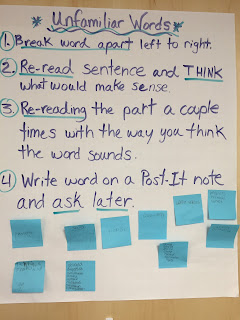 Unfamiliar Words
1. Break word apart left to right.
2. Re-read sentence and THINK
what would make sense.
3. Re-reading the part a couple
times with the way you think
the word sounds.
4) Write word on a Post-It note
and ask later.